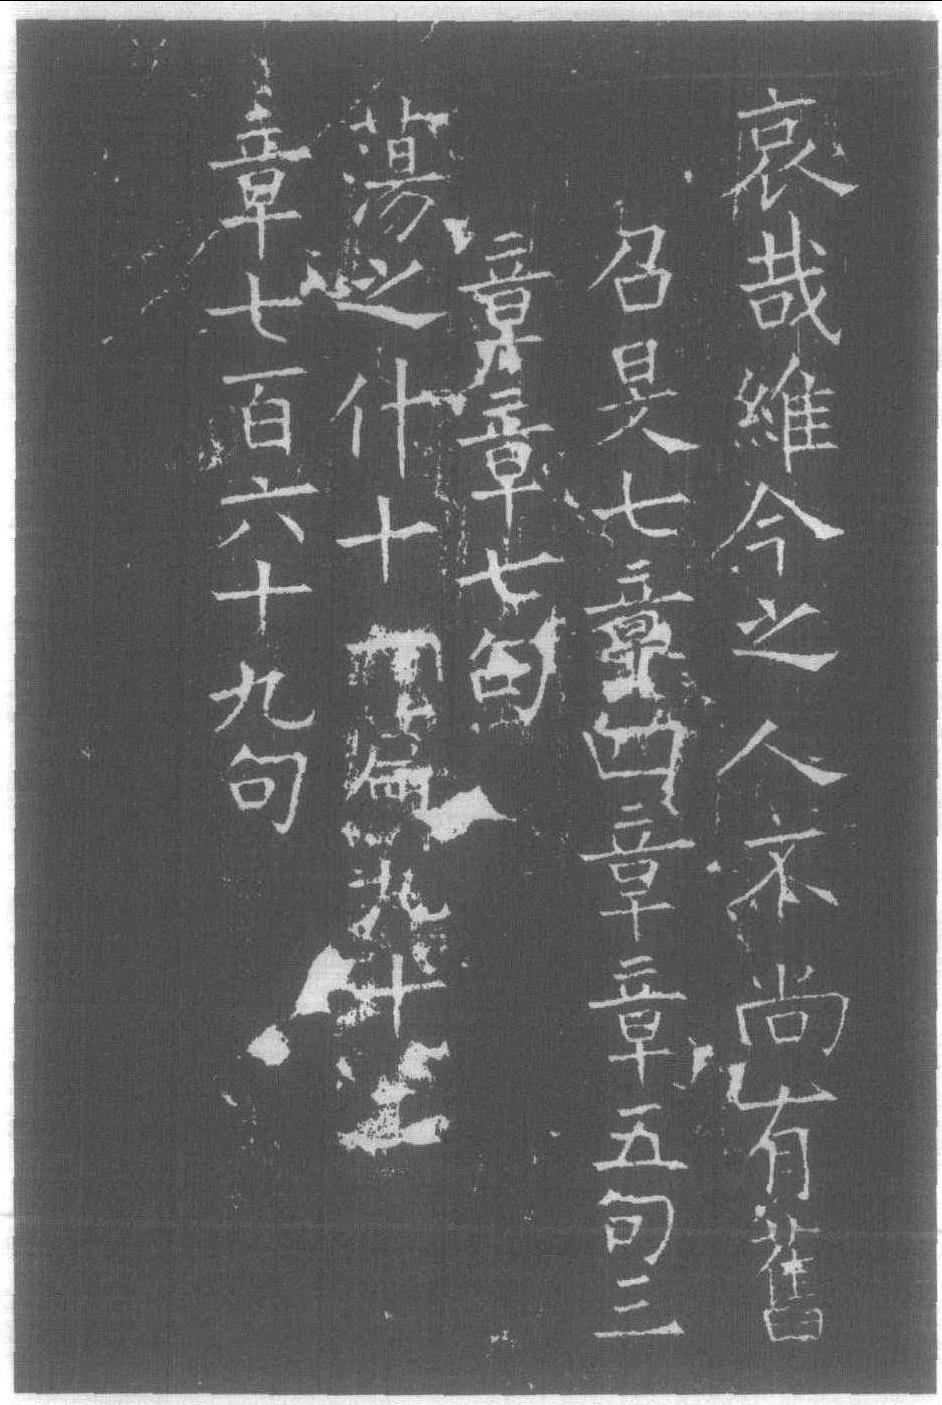 哀哉維今之人不尚有舊
召旻七章四章章五句三
章章七句
蕩之什十一篇九十二
章七百六十九句